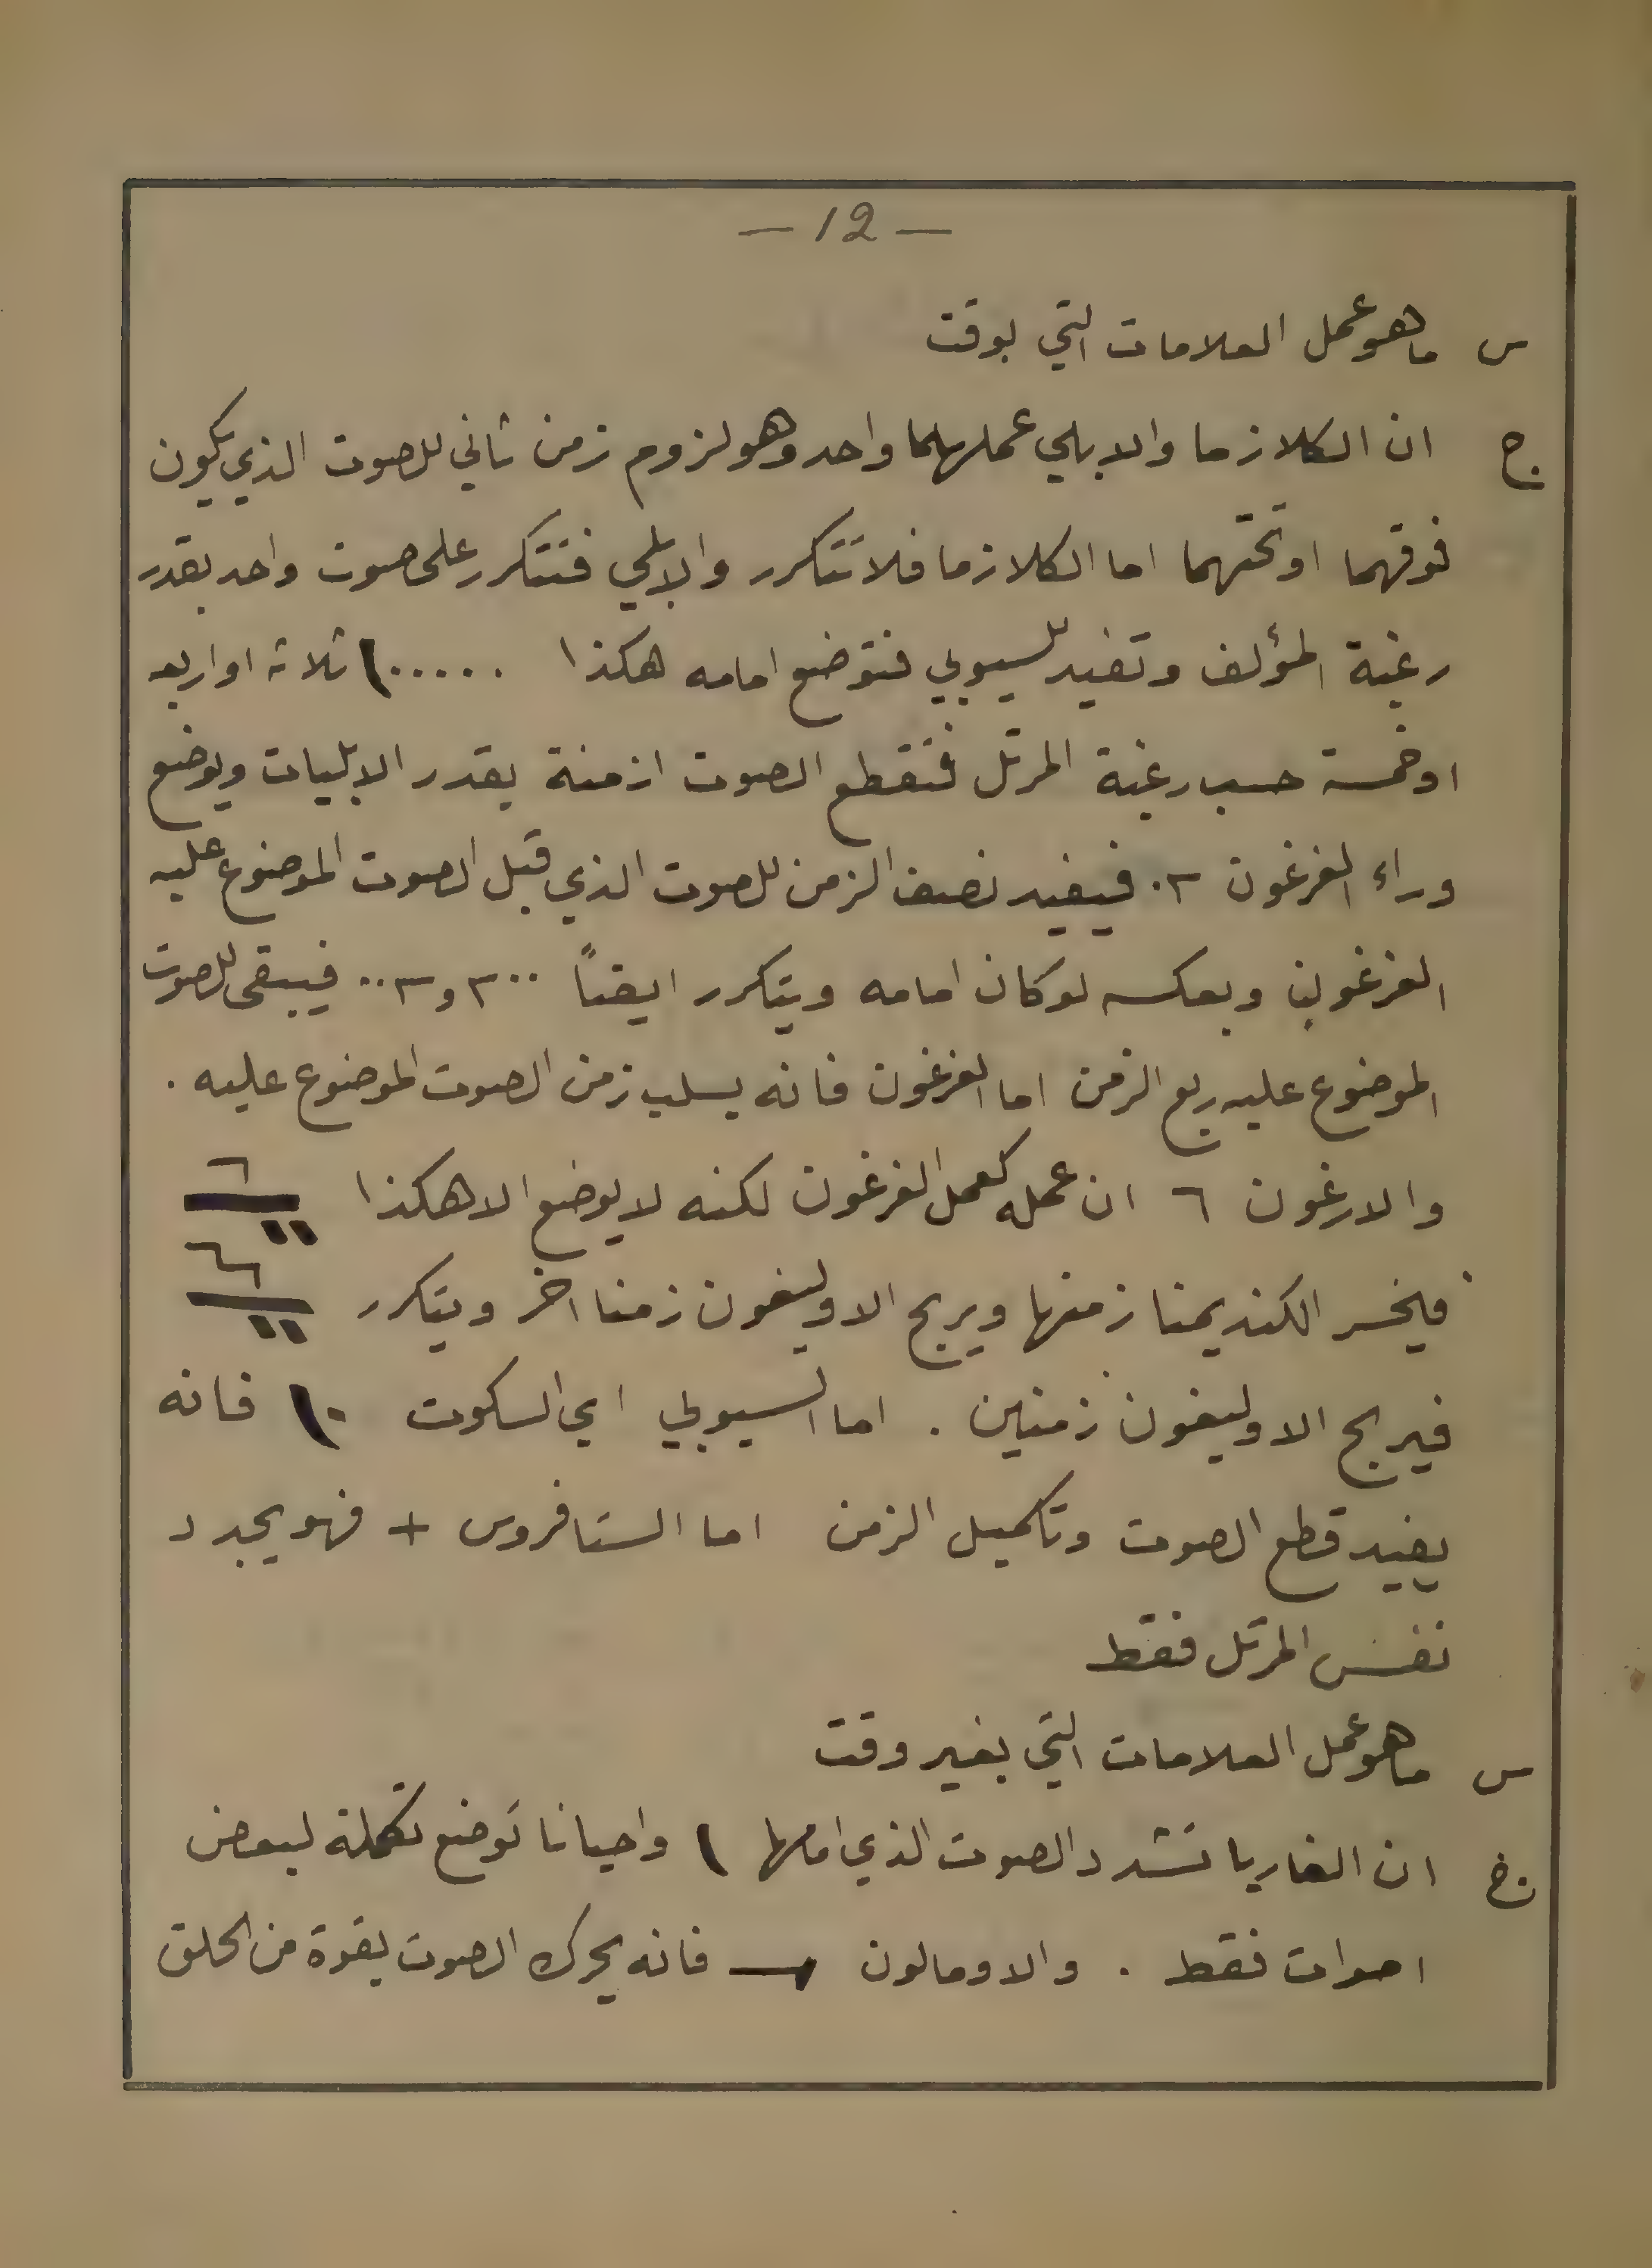 — 12 —
س ما هو عمل العلامات التي بوقت
ج ان الكلازما والابلي عملهما واحد وهو لزوم زمن ثاني للصوت الذي يكون
فوقهما او تحتهما اما الكلازما فلا تتكرر والابلي فتتكرر على صوت واحد بقدر
رغبة المؤلف وتفيد للسيوبي فتوضع امامه هكذا ..... ثلاثة او اربعه
او خمسة حسب رغبة المرتل فتقطع الصوت ازمنة بقدر الابليات ويوضع
وراء الغرغون فيفيد نصف الزمن للصوت الذي قبل الصوت الموضوع عليه
الغرغون وبعكسه لو كان امامه ويتكرر ايضاً و فيبقى للصوت
الموضوع عليه ربع الزمن اما الغرغون فانه يسلب زمن الصوت الموضوع عليه .
والارغون ان عمله كعمل الغرغون لكنه لا يوضع الا هكذا
فيخسر الكنديمنا زمنها ويربح الاوليغون زمنا اخر ويتكرر
فيربح الاوليغون زمنين . اما السيوبي اي السكوت فانه
يفيد قطع الصوت وتكميل الزمن اما الستافروس + فهو يجدد
نفس المرتل فقط
س ما هو عمل العلامات التي بغير وقت
ج ان الفاريا تشدد الصوت الذي امامها \ واحيانا توضع تكملة لبعض
اصوات فقط . والاومالون فانه يحرك الصوت بقوة من الحلق